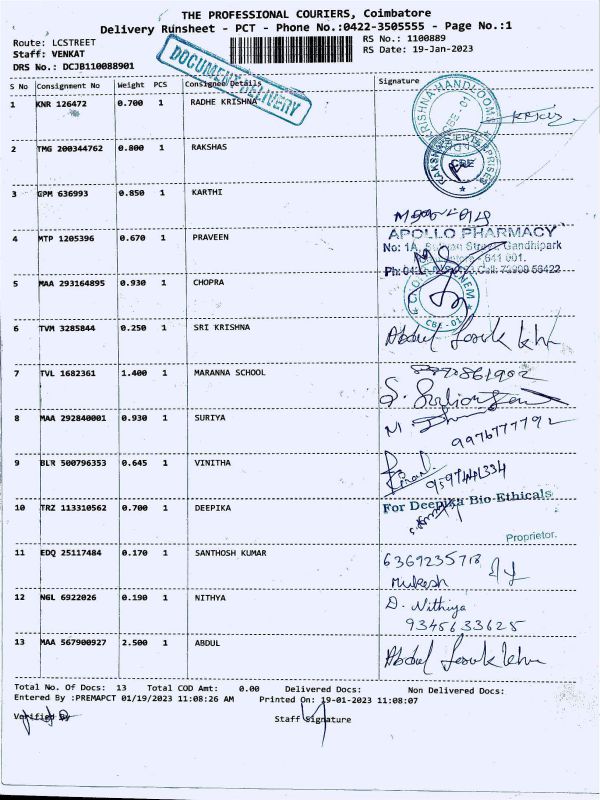 THE PROFESSIONAL COURIERS, Coimbatore
Delivery Runsheet - PCT - Phone No.:0422-3505555 - Page No.:1
Route: LCSTREET RS No.: 1100889
Staff: VENKAT RS Date: 19-Jan-2023
DRS No.: DCJB110088901
DOCUMENT DELIVERY
S No Consignment No Weight PCS Consignee Details Signature
1 KNR 126472 0.700 1 RADHE KRISHNA
KRISHNA HANDLOOM CBE - 01
2 TMG 200344762 0.800 1 RAKSHAS
RAKSHAS ENTERPRISES CBE
3 GPM 636993 0.850 1 KARTHI
4 MTP 1205396 0.670 1 PRAVEEN
APOLLO PHARMACY
No: 1A, Street, Gandhipark
- 641 001.
Ph: 0422 Cell: 56422
5 MAA 293164895 0.930 1 CHOPRA
CBE - 01
6 TVM 3285844 0.250 1 SRI KRISHNA
Abdul
7 TVL 1682361 1.400 1 MARANNA SCHOOL
8 MAA 292840001 0.930 1 SURIYA
9976777792
9 BLR 500796353 0.645 1 VINITHA
10 TRZ 113310562 0.700 1 DEEPIKA
For Deepika Bio Ethicals
Proprietor.
11 EDQ 25117484 0.170 1 SANTHOSH KUMAR
6369235718
Mukesh
12 NGL 6922026 0.190 1 NITHYA
D. Nithiya
9345633625
13 MAA 567900927 2.500 1 ABDUL
Abdul
Total No. Of Docs: 13 Total COD Amt: 0.00 Delivered Docs: Non Delivered Docs:
Entered By :PREMAPCT 01/19/2023 11:08:26 AM Printed On: 19-01-2023 11:08:07
Verified By Staff Signature